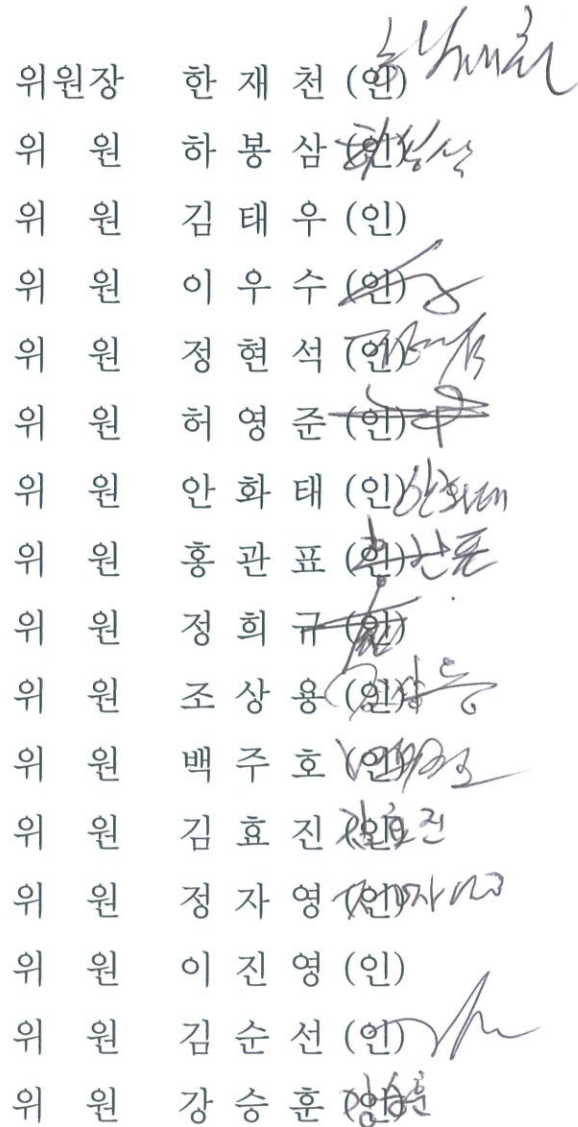 위원장 한 재 천 (인)
위 원 하 봉 삼 (인)
위 원 김 태 우 (인)
위 원 이 우 수 (인)
위 원 정 현 석 (인)
위 원 허 영 준 (인)
위 원 안 화 태 (인) 안화태
위 원 홍 관 표 (인)
위 원 정 희 규 (인)
위 원 조 상 용 (인)
위 원 백 주 호 (인)
위 원 김 효 진 (인)
위 원 정 자 영 (인)
위 원 이 진 영 (인)
위 원 김 순 선 (인)
위 원 강 승 훈 (인)